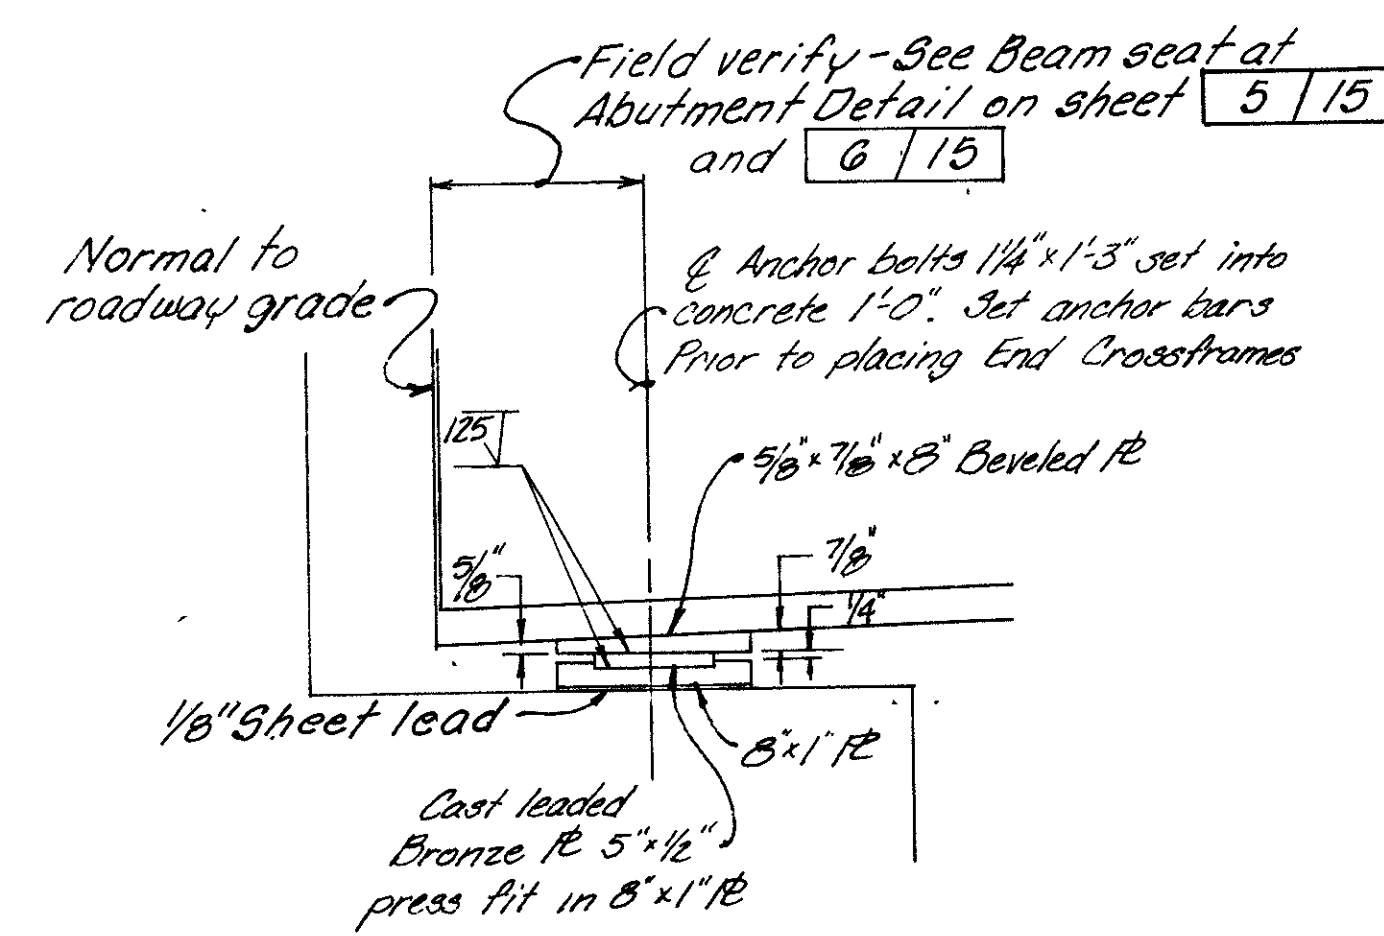 Field verify - See Beam seat at
Abutment Detail on sheet 5 / 15
and 6 / 15
Normal to
roadway grade
℄ Anchor bolts 1¼" x 1'-3" set into
concrete 1'-0". Set anchor bars
Prior to placing End Crossframes
125
5/8" x 7/8" x 8" Beveled PL
5/8"
7/8"
1/4"
1/8" Sheet lead
8" x 1" PL
Cast leaded
Bronze PL 5" x 1/2"
press fit in 8" x 1" PL